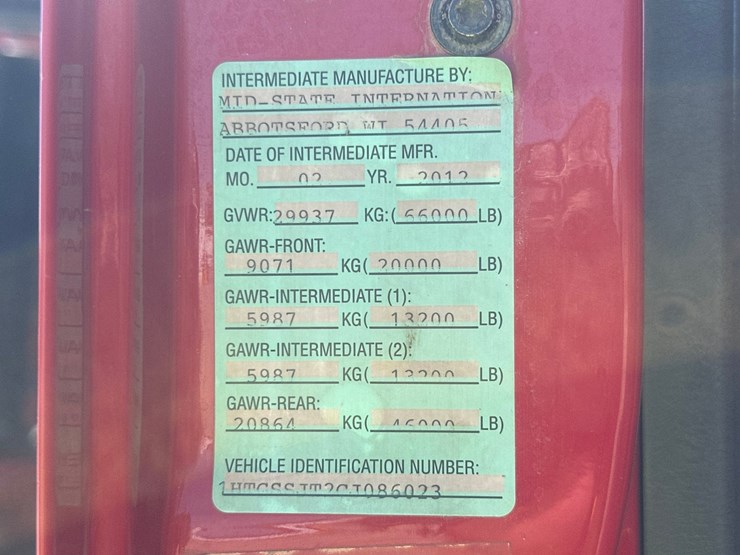 INTERMEDIATE MANUFACTURE BY:
MID-STATE INTERNATION
ABBOTSFORD WI 54405
DATE OF INTERMEDIATE MFR.
MO. 02 YR. 2012
GVWR: 29937 KG: ( 66000 LB)
GAWR-FRONT:
9071 KG( 20000 LB)
GAWR-INTERMEDIATE (1):
5987 KG( 13200 LB)
GAWR-INTERMEDIATE (2):
5987 KG( 13200 LB)
GAWR-REAR:
20864 KG( 46000 LB)
VEHICLE IDENTIFICATION NUMBER: